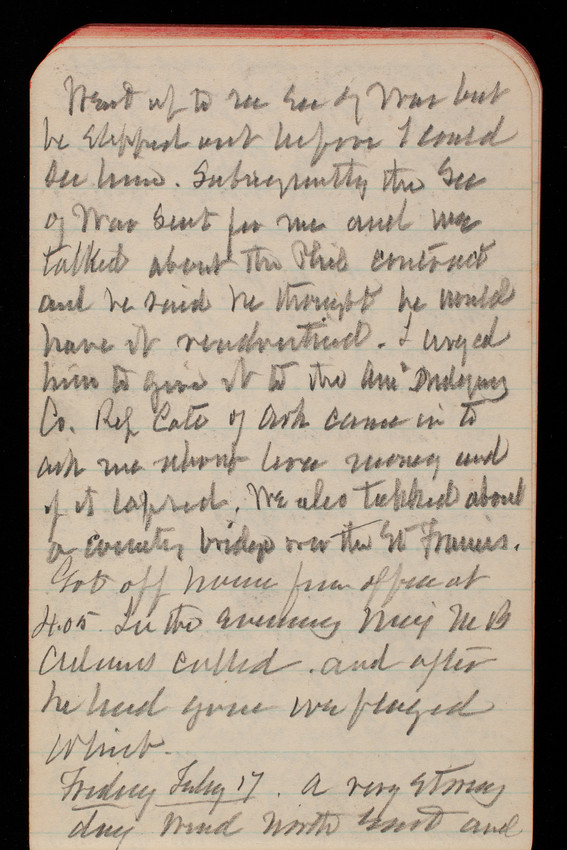 Went up to see Sec of War but
he stepped out before I could
See him. Subsequently the Sec
of War Sent for me and we
talked about the Phil contract
and he said he thought he would
have it readvertised. I urged
him to give it to the Am Dredging
Co. Rep Cate of Ark came in to
ask me about levee money and
if it lapsed. We also talked about
a county bridge over the St Francis.
Got off home from office at
4.05. In the evening Maj M B
Adams called. and after
he had gone we played
Whist.
Friday July 17. A very Stormy
day Wind North East and